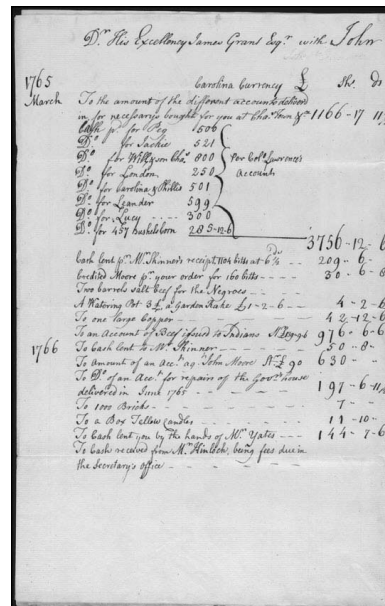 Dr His Excellency James Grant Esqr with John
Carolina Currency £ Sh. d
1765
March To the amount of the different accounts delivered
in for necessarys bought for you at Chs. Town &c 1166-17 11
Cash pd for Peg 506
Do for Jackie 521
Do for Will & son Chs. 800 Per Colo. Lawrence's
Do for London 250 Accounts
Do for Carolina & Phillis 501
Do for Leander 599
Do for Lucy 300
Do for 457 Bushels Corn 285-12-6
3756-12-6
Cash lent pr Mr Skinner's receipt 1104 bills at 6 ds 209-6-
Credited Moore pr your order for 160 bills 30-6-8
Two barrols salt Beef for the Negroes
A Watering Pot 3£, a Garden Rake £1-2-6 4-2-6
To one large Copper 42-12-6
To an Account of Beef issued to Indians 976-6-6
1766 To Cash lent to Mr Skinner 50-8-
To amount of an Acct. ag. John Moore St. £ 90 630
To Do of an Acct. for repairs of the Govrs house
delivered in June 1765 197-6-11
To 1000 Bricks 7
To a Box Tellow Candles 11-10-
To Cash lent you by the hands of Mr Yates 144-7-6
To Cash received from Mr Kinloch, being fees due in
the Secretary's office